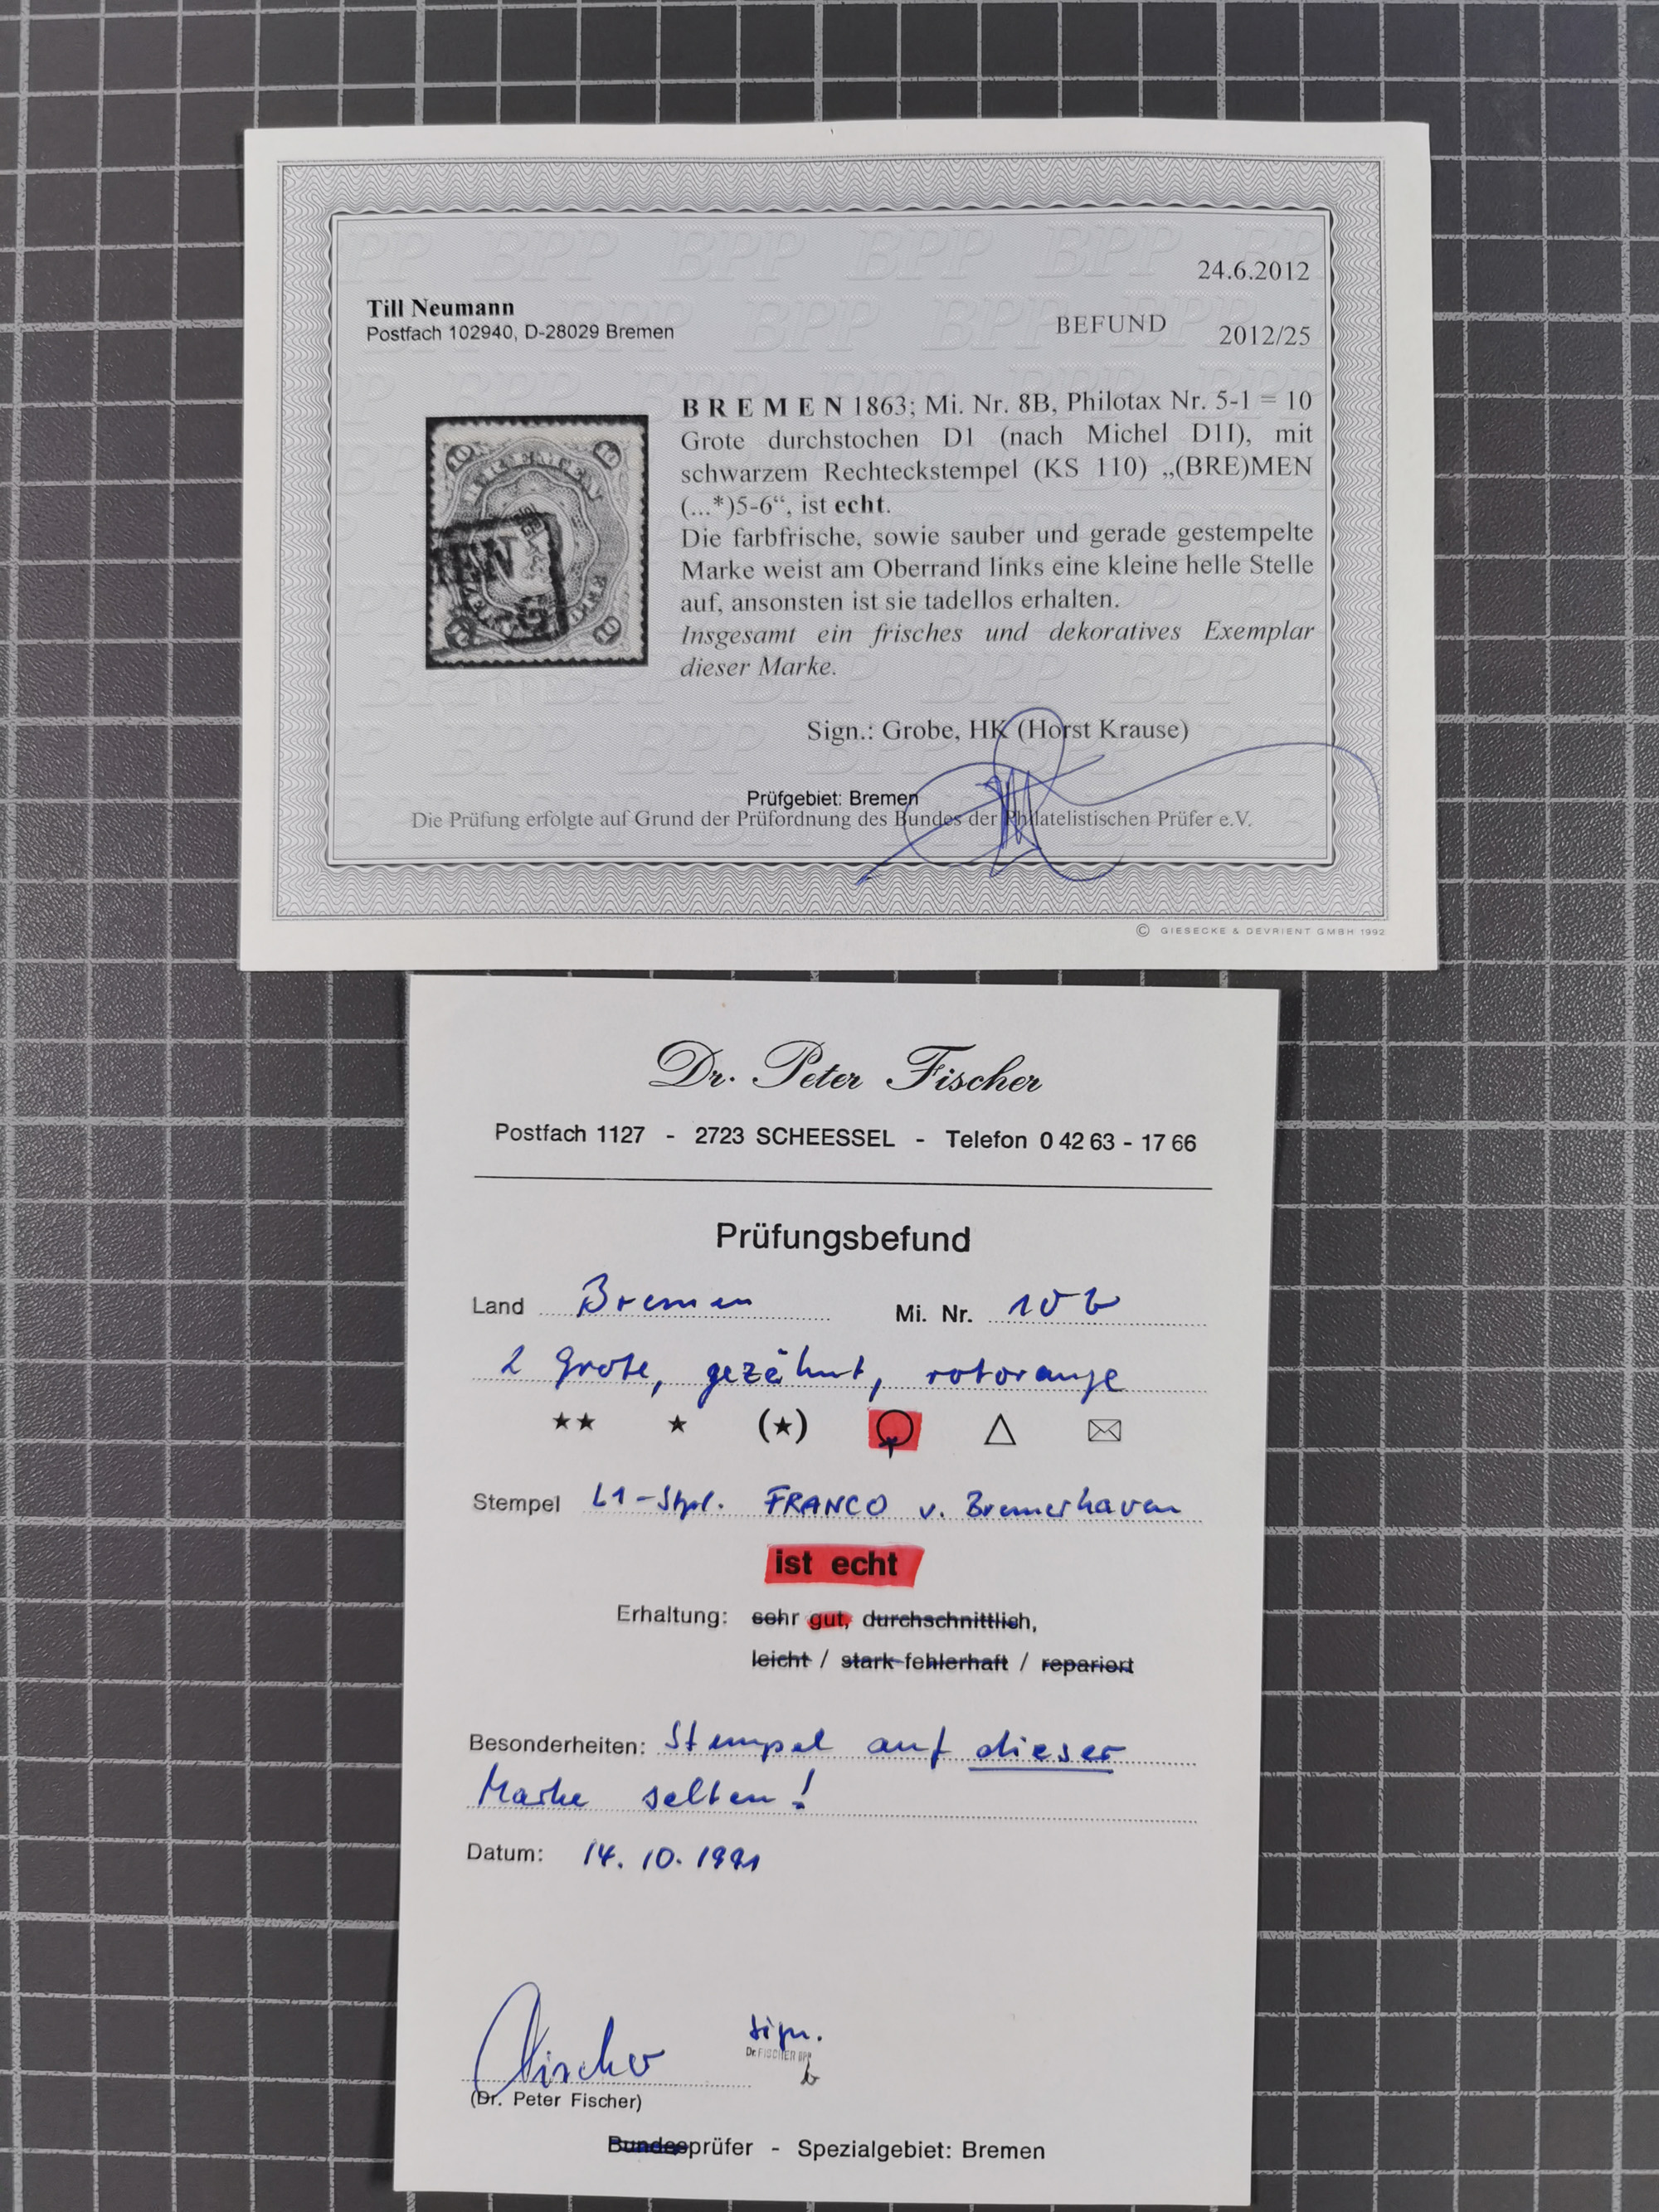 24.6.2012
Till Neumann
Postfach 102940, D-28029 Bremen
BEFUND
2012/25
BREMEN 1863; Mi. Nr. 8B, Philotax Nr. 5-1 = 10
Grote durchstochen D1 (nach Michel D1I), mit
schwarzem Rechteckstempel (KS 110) „(BRE)MEN
(...*)5-6“, ist echt.
Die farbfrische, sowie sauber und gerade gestempelte
Marke weist am Oberrand links eine kleine helle Stelle
auf, ansonsten ist sie tadellos erhalten.
Insgesamt ein frisches und dekoratives Exemplar
dieser Marke.
Sign.: Grobe, HK (Horst Krause)
Prüfgebiet: Bremen
Die Prüfung erfolgte auf Grund der Prüfordnung des Bundes der Philatelistischen Prüfer e.V.
© GIESECKE & DEVRIENT GMBH 1992
Dr. Peter Fischer
Postfach 1127 - 2723 SCHEESSEL - Telefon 0 42 63 - 17 66
Prüfungsbefund
Land Bremen Mi. Nr. 10 b
2 Grote, gezähnt, rotorange
★★ ★ (★) △
Stempel L1-Stpl. FRANCO v. Bremerhaven
ist echt
Erhaltung: sehr gut, durchschnittlich,
leicht / stark fehlerhaft / repariert
Besonderheiten: Stempel auf dieser
Marke selten!
Datum: 14. 10. 1991
Fischer
sign.
Dr. FISCHER BPP
b
(Dr. Peter Fischer)
Bundesprüfer - Spezialgebiet: Bremen